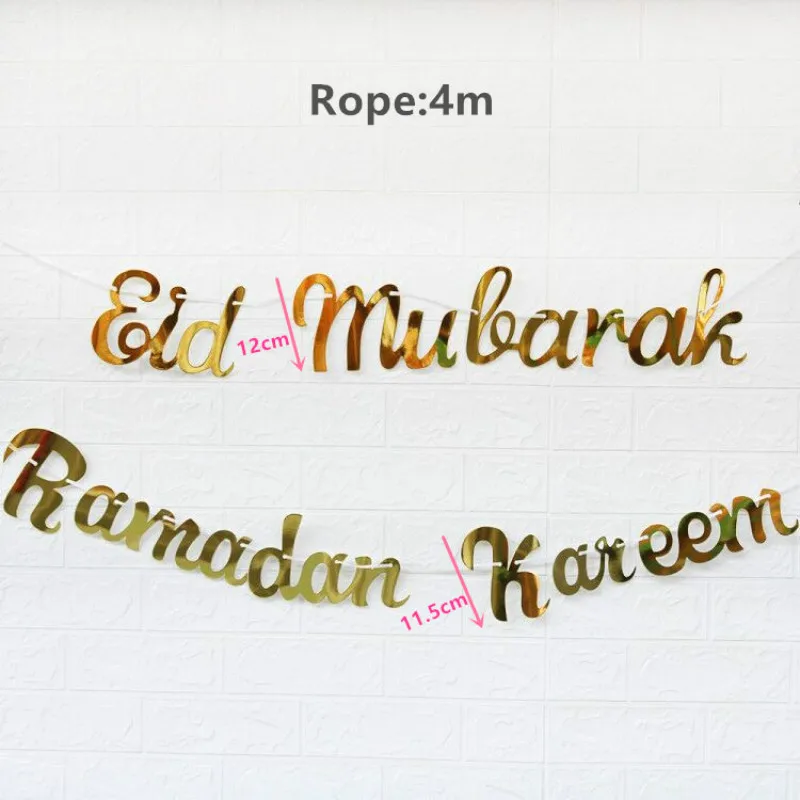 Rope:4m
Eid Mubarak
12cm
Ramadan Kareem
11.5cm